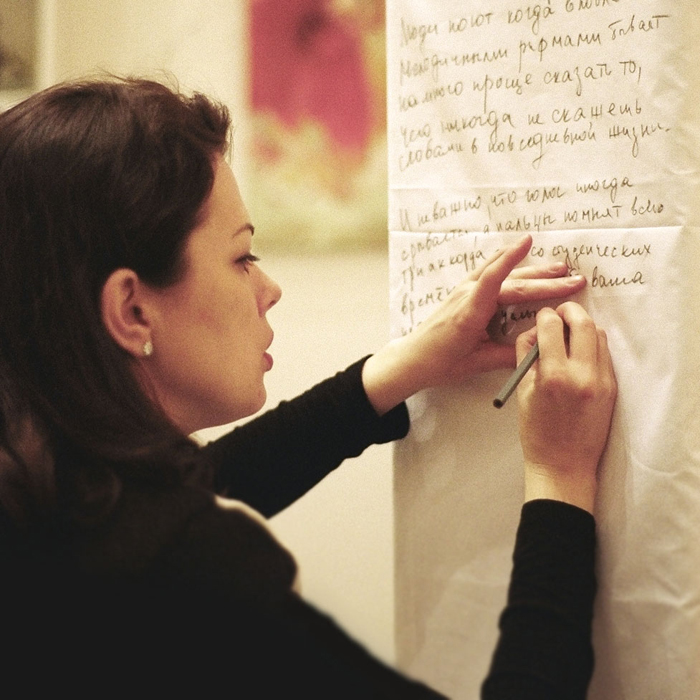 Люди поют когда влюбле
Мелодичными рифмами бывает
намного проще сказать то,
чего никогда не скажешь
словами в повседневной жизни.
И неважно, что голос иногда
срывается, а пальцы помнят всего
три аккорда со студенческих
времён ваша